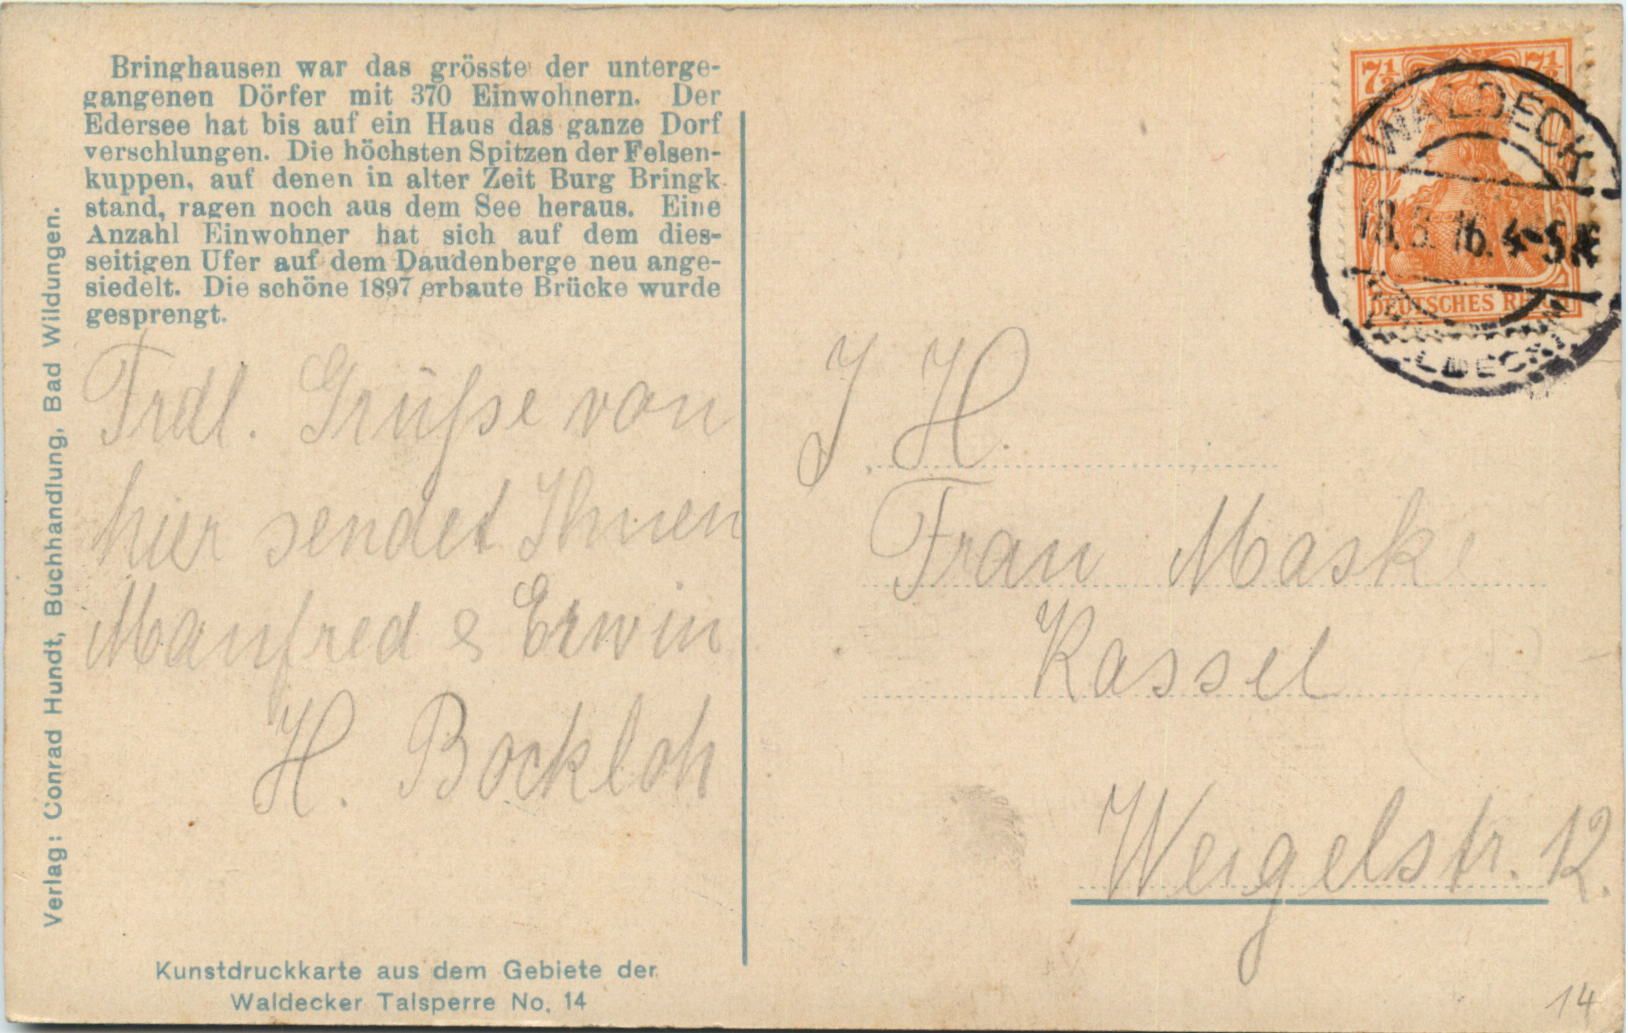 Bringhausen war das grösste der unterge-
gangenen Dörfer mit 370 Einwohnern. Der
Edersee hat bis auf ein Haus das ganze Dorf
verschlungen. Die höchsten Spitzen der Felsen-
kuppen, auf denen in alter Zeit Burg Bringk
stand, ragen noch aus dem See heraus. Eine
Anzahl Einwohner hat sich auf dem dies-
seitigen Ufer auf dem Daudenberge neu ange-
siedelt. Die schöne 1897 erbaute Brücke wurde
gesprengt.
Frdl. Grüße von
hier sendet Ihnen
Manfred & Erwin
H. Bockloh
Verlag: Conrad Hundt, Buchhandlung, Bad Wildungen.
Kunstdruckkarte aus dem Gebiete der
Waldecker Talsperre No. 14
7½ 7½
DEUTSCHES REICH
WALDECK
4-5N
J. H.
Frau Maske
Kassel
Weigelstr. 12.
14